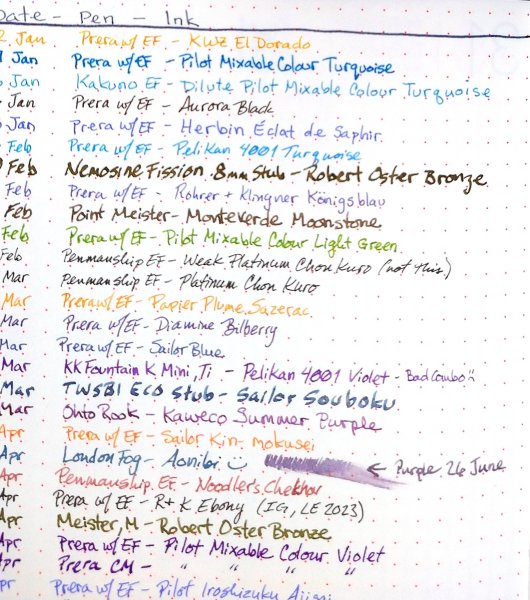 Date - Pen - Ink
2 Jan Prera w/ EF - KWZ El Dorado
Jan Prera w/ EF - Pilot Mixable Colour Turquoise
Jan Kakuno EF - Dilute Pilot Mixable Colour Turquoise
Jan Prera w/ EF - Aurora Black
Jan Prera w/ EF - Herbin Eclat de Saphir
Feb Prera w/ EF - Pelikan 4001 Turquoise
Feb Nemosine Fission .8mm Stub - Robert Oster Bronze
Feb Prera w/ EF - Rohrer + Klingner Königsblau
Feb Point Meister - Monteverde Moonstone
Feb Prera w/ EF - Pilot Mixable Colour Light Green
Feb Penmanship EF - Weak Platinum Chou Kuro (not this)
Mar Penmanship EF - Platinum Chou Kuro
Mar Prera w/ EF - Papier Plume Sazerac
Mar Prera w/ EF - Diamine Bilberry
Mar Prera w/ EF - Sailor Blue
Mar KK Fountain K Mini, Ti - Pelikan 4001 Violet - Bad Combo
Mar TWSBI Eco Stub - Sailor Souboku
Mar Ohto Rook - Kaweco Summer Purple
Apr Prera w/ EF - Sailor Kin-mokusei
Apr London Fog - Aonibi ← Purple 26 June
Apr Penmanship EF - Noodler's Chekhov
Apr Prera w/ EF - R+K Ebony (IG, LE 2023)
Apr Meister, M - Robert Oster Bronze
Apr Prera w/ EF - Pilot Mixable Colour Violet
Apr Prera CM - " " " "
Apr Prera w/ EF - Pilot Iroshizuku Ajisai